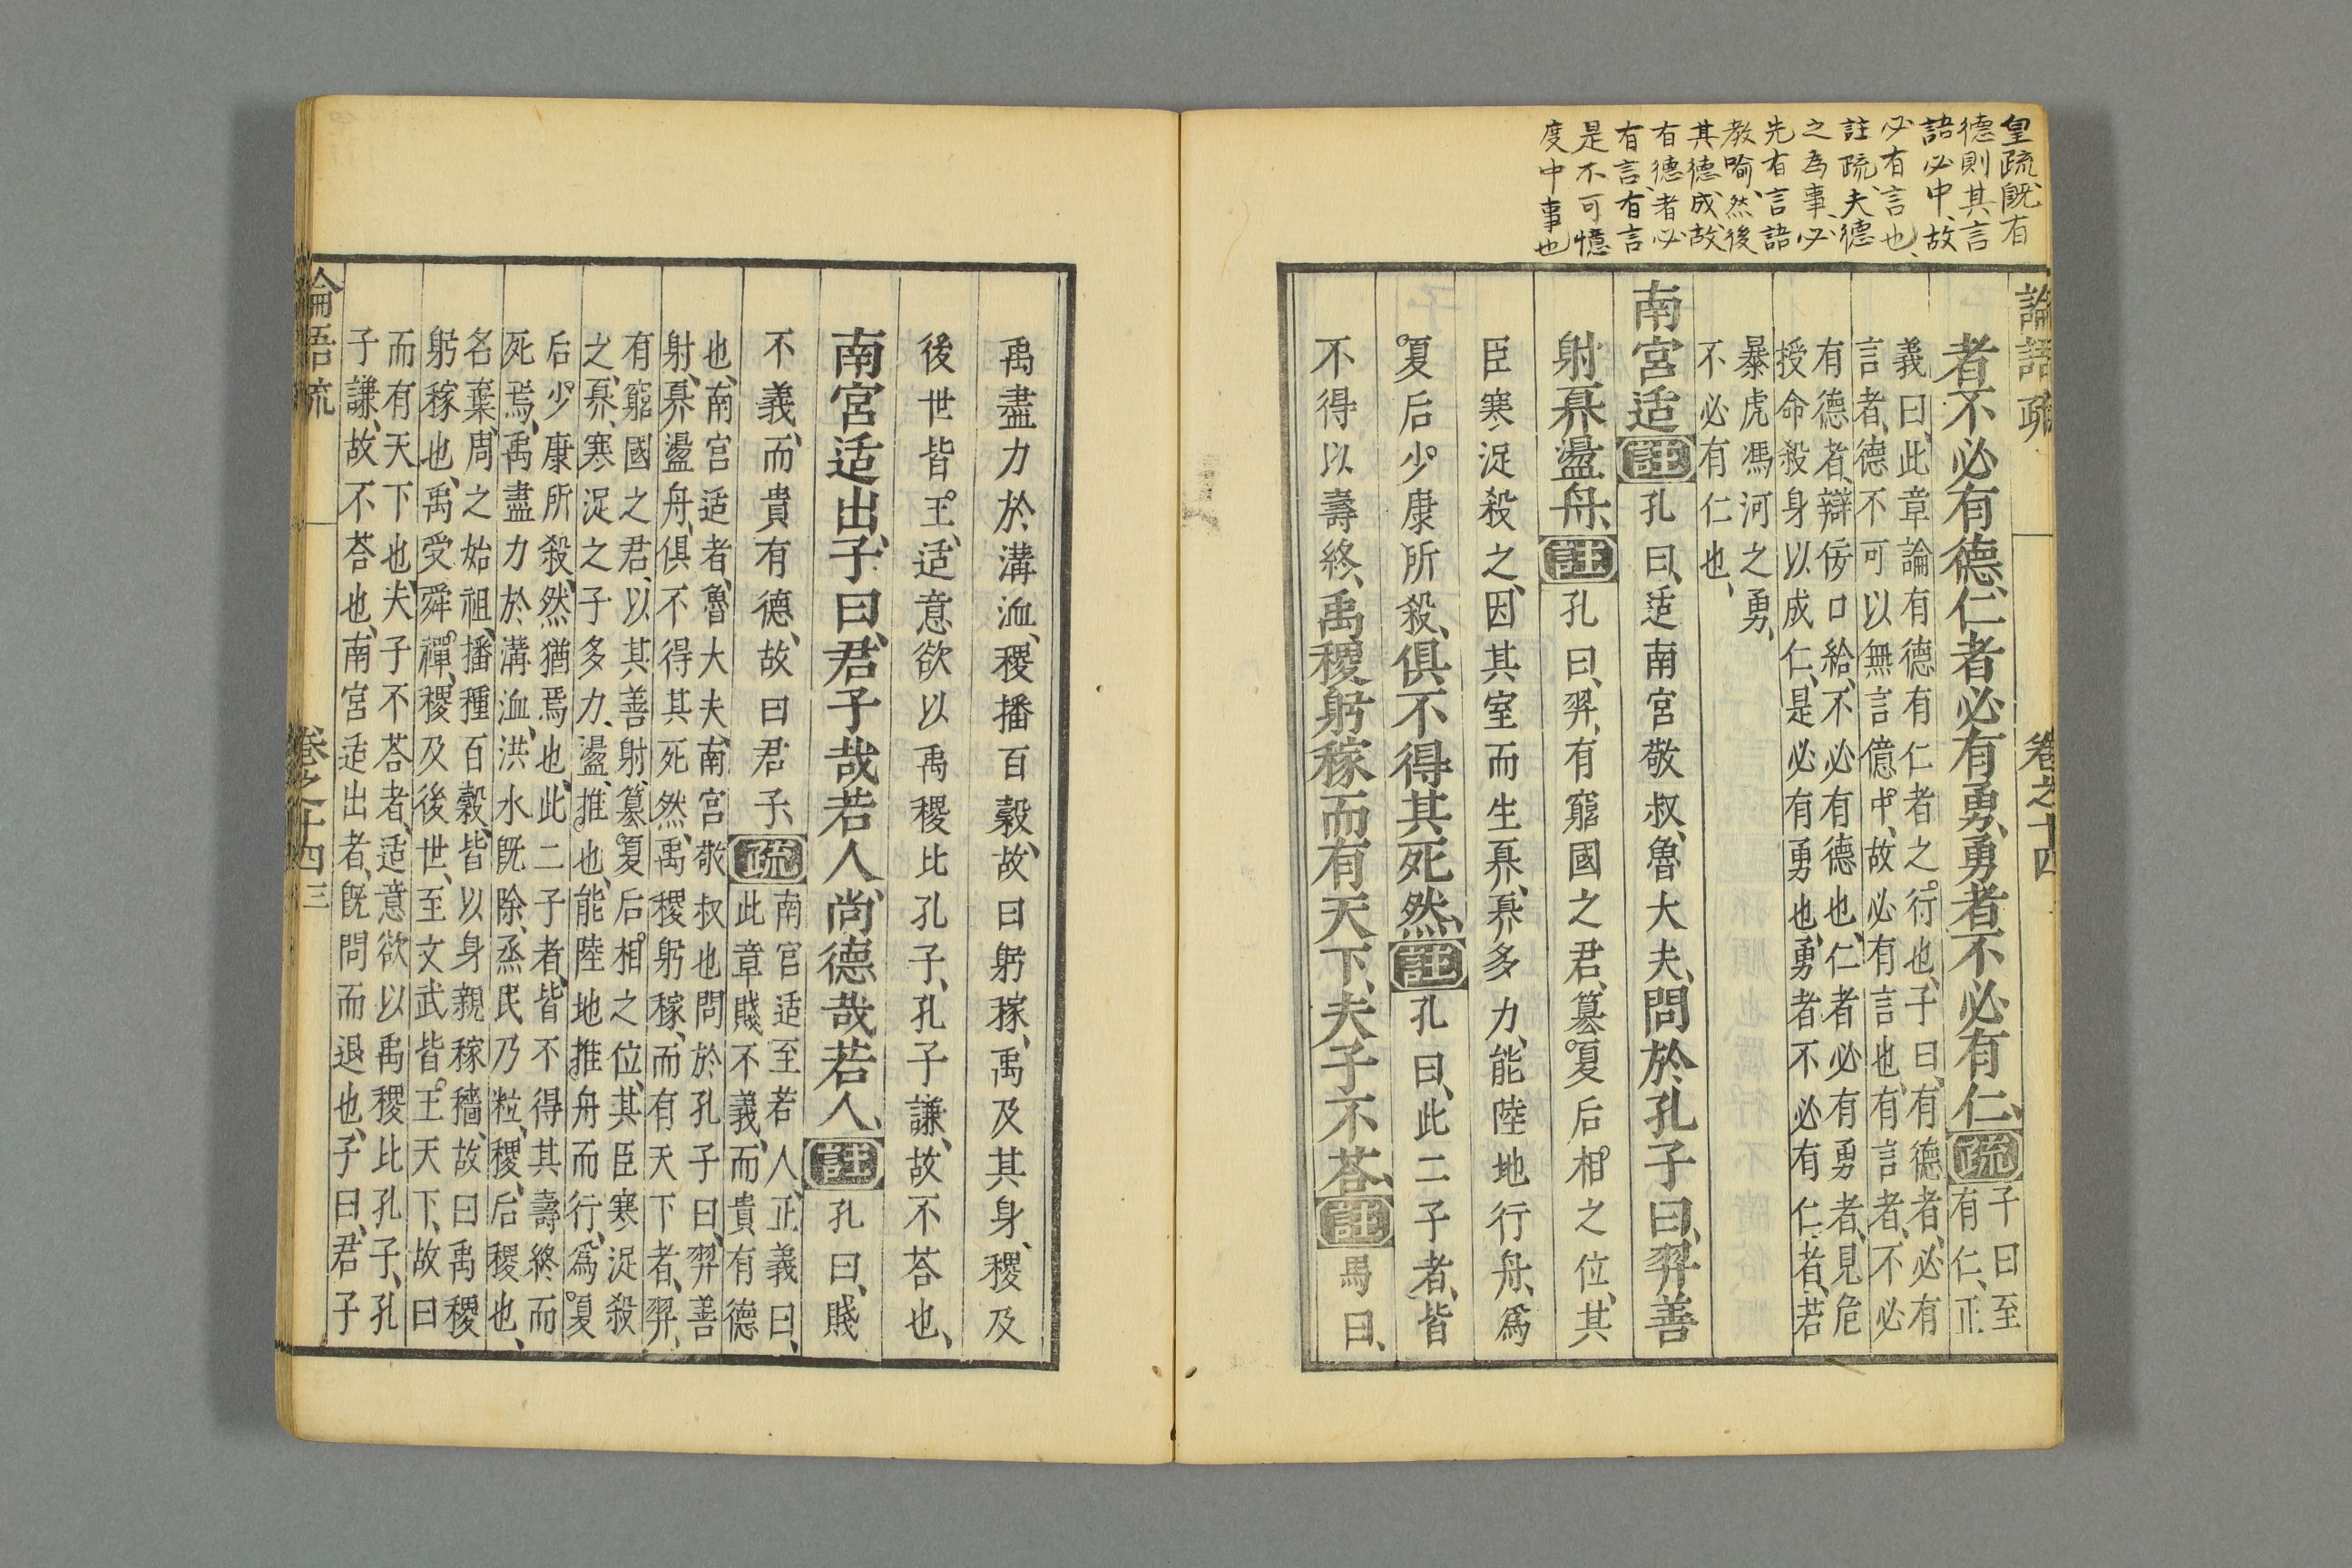 皇疏、旣有
德則其言
語必中、故
必有言也、
註疏、夫德
之為事、必
先有言語
教喻、然後
其德成、故
有德者必
有言、有言
是不可憶
度中事也
論語疏 卷之十四
者不必有德、仁者必有勇、勇者不必有仁、疏子曰至
有仁、正
義曰、此章論有德有仁者之行也、子曰、有德者、必有
言者、德不可以無言億中、故必有言也、有言者、不必
有德者、辯佞口給、不必有德也、仁者必有勇者、見危
授命殺身以成仁、是必有勇也、勇者不必有仁者、若
暴虎馮河之勇、
不必有仁也、
南宮适註孔曰、适南宮敬叔、魯大夫、問於孔子曰、羿善
射、奡盪舟、註孔曰、羿、有窮國之君、簒夏后相之位、其
臣寒浞殺之、因其室而生奡、奡多力、能陸地行舟、爲
夏后少康所殺、俱不得其死然、註孔曰、此二子者、皆
不得以壽終、禹稷躬稼而有天下、夫子不荅、註馬曰、
禹盡力於溝洫、稷播百穀、故曰躬稼、禹及其身、稷及
後世皆王、适意欲以禹稷比孔子、孔子謙、故不荅也、
南宮适出、子曰、君子哉若人、尚德哉若人、註孔曰、賤
不義、而貴有德、故曰君子、疏南宮适至若人、正義曰、
此章賤不義、而貴有德
也、南宮适者、魯大夫、南宮敬叔也問於孔子曰、羿善
射、奡盪舟、俱不得其死然、禹稷躬稼、而有天下者、羿、
有窮國之君、以其善射、簒夏后相之位、其臣寒浞殺
之、奡、寒浞之子多力、盪、推也、能陸地推舟而行、爲夏
后少康所殺、然猶焉也、此二子者、皆不得其壽終而
死焉、禹盡力於溝洫、洪水旣除、烝民乃粒、稷、后稷也、
名棄、周之始祖、播種百穀、皆以身親稼穡、故曰禹稷
躬稼也、禹受舜禪、稷及後世、至文武皆王天下、故曰
而有天下也、夫子不荅者、适意欲以禹稷比孔子、孔
子謙、故不荅也、南宮适出者、旣問而退也、子曰、君子
論語疏 卷之十四 三